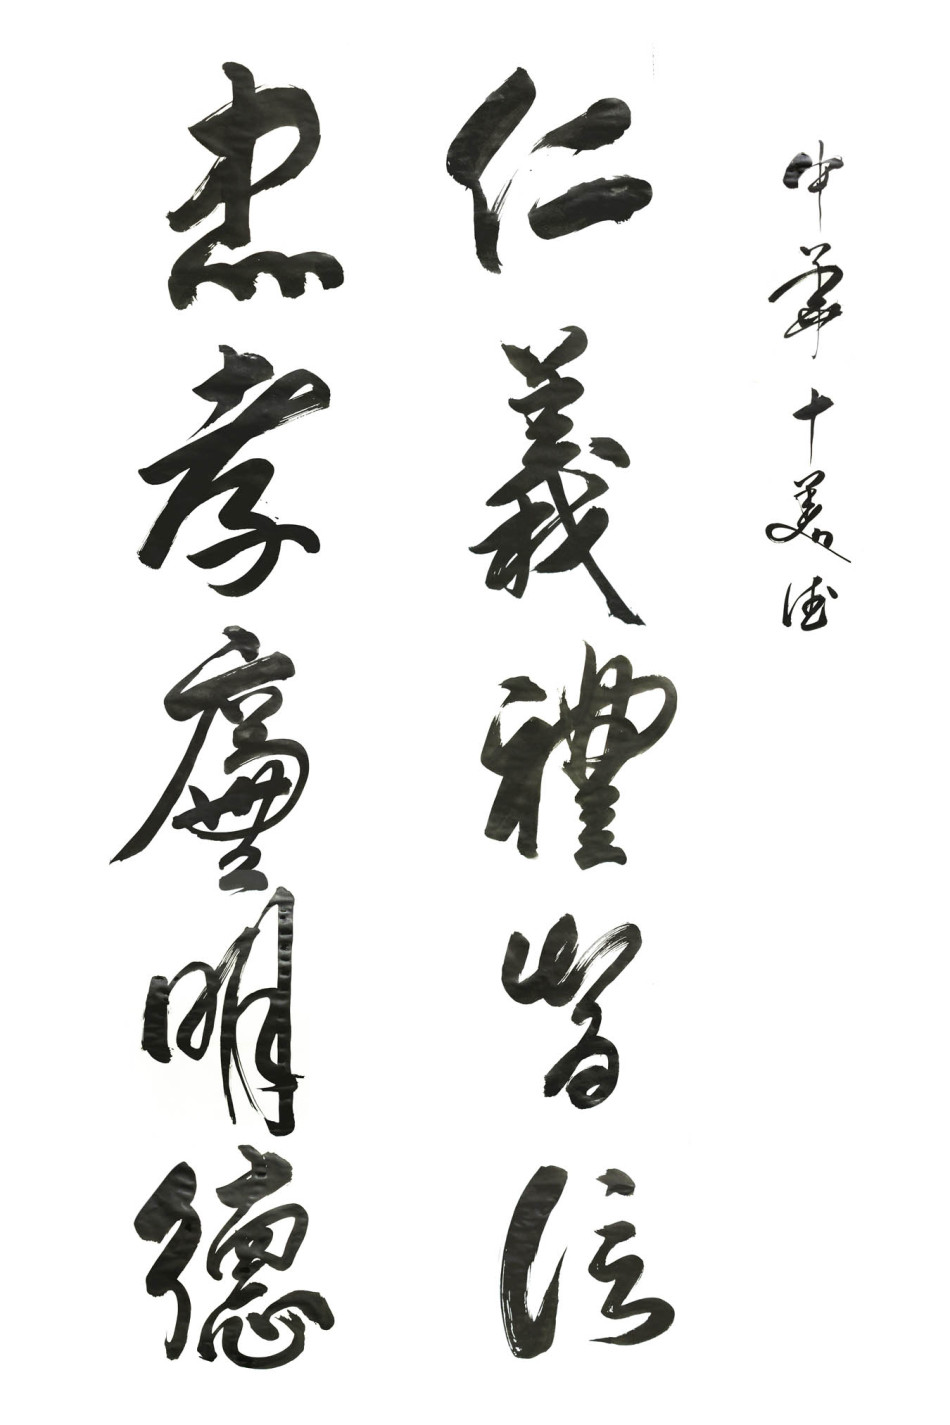 中華十美德
仁義禮智信
忠孝廉明德